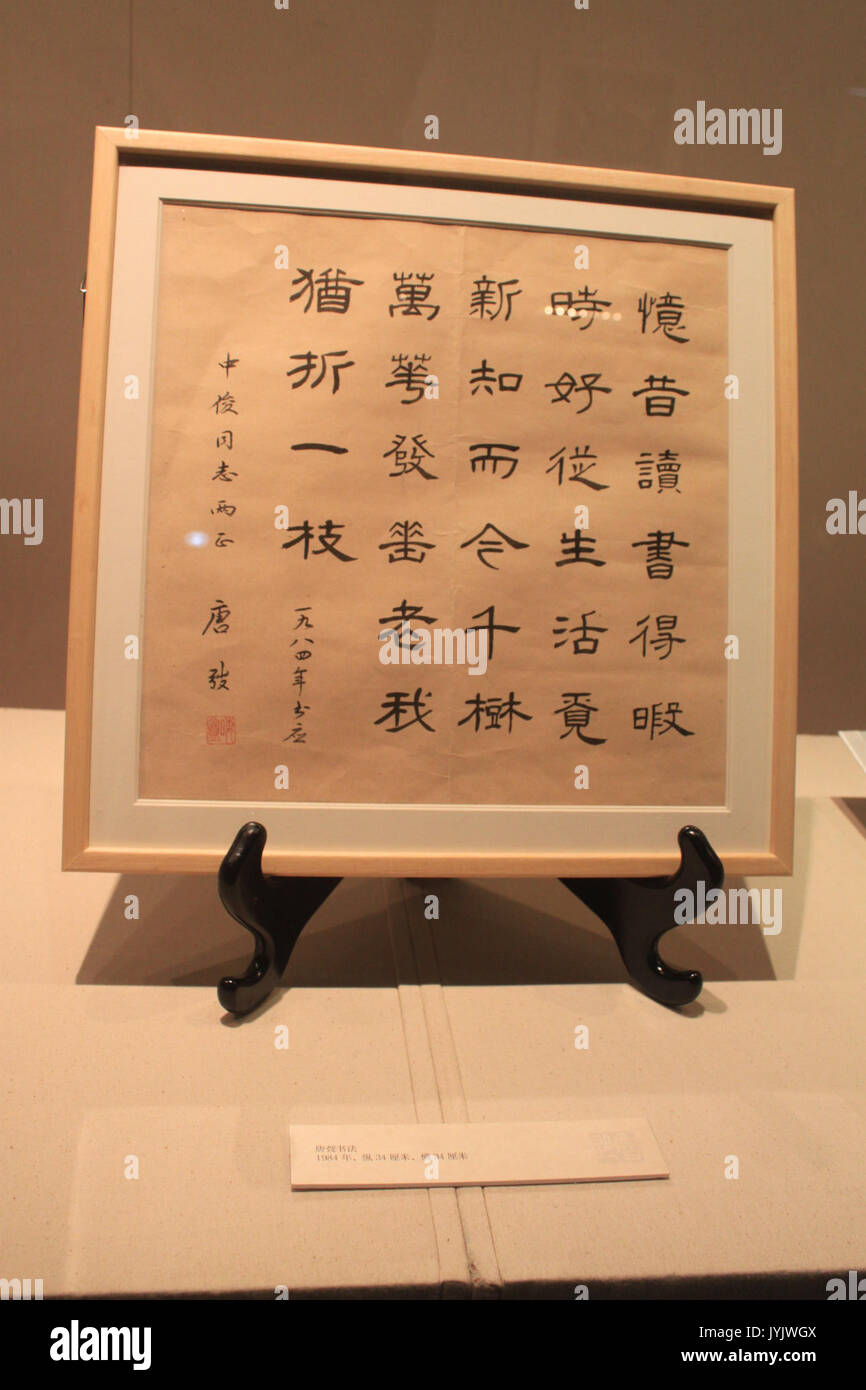 憶昔讀書得暇
時好從生活覓
新知而今千樹
萬華發垂老我
猶折一枝
一九八四年书应
中俊同志两正
唐弢
唐弢书法
1984 年、纵 34 厘米、横 34 厘米
alamy
Image ID: JYJWGX
www.alamy.com